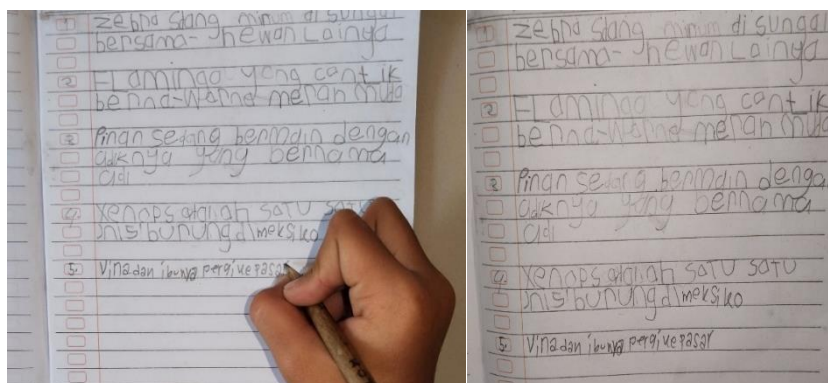 1 zebra sdang minum di sungai
bersama- hewan Lainya
2 FLamingo yang cantik
berna-warna merah muda
3 Pinan sedang bermain dengan
adiknya yang bernama
adi
4 xenops adalah satu satu
jnis burung di meksiko
5. Vina dan ibunya pergi ke pasar
1 zebra sdang minum di sungai
bersama- hewan Lainya
2 FLamingo yang cantik
berna-warna merah muda
3 Pinan sedang bermain denga
adiknya yang bernama
adi
4 xenops adalah satu satu
jnis burung di meksiko
5. Vina dan ibunya pergi ke pasar